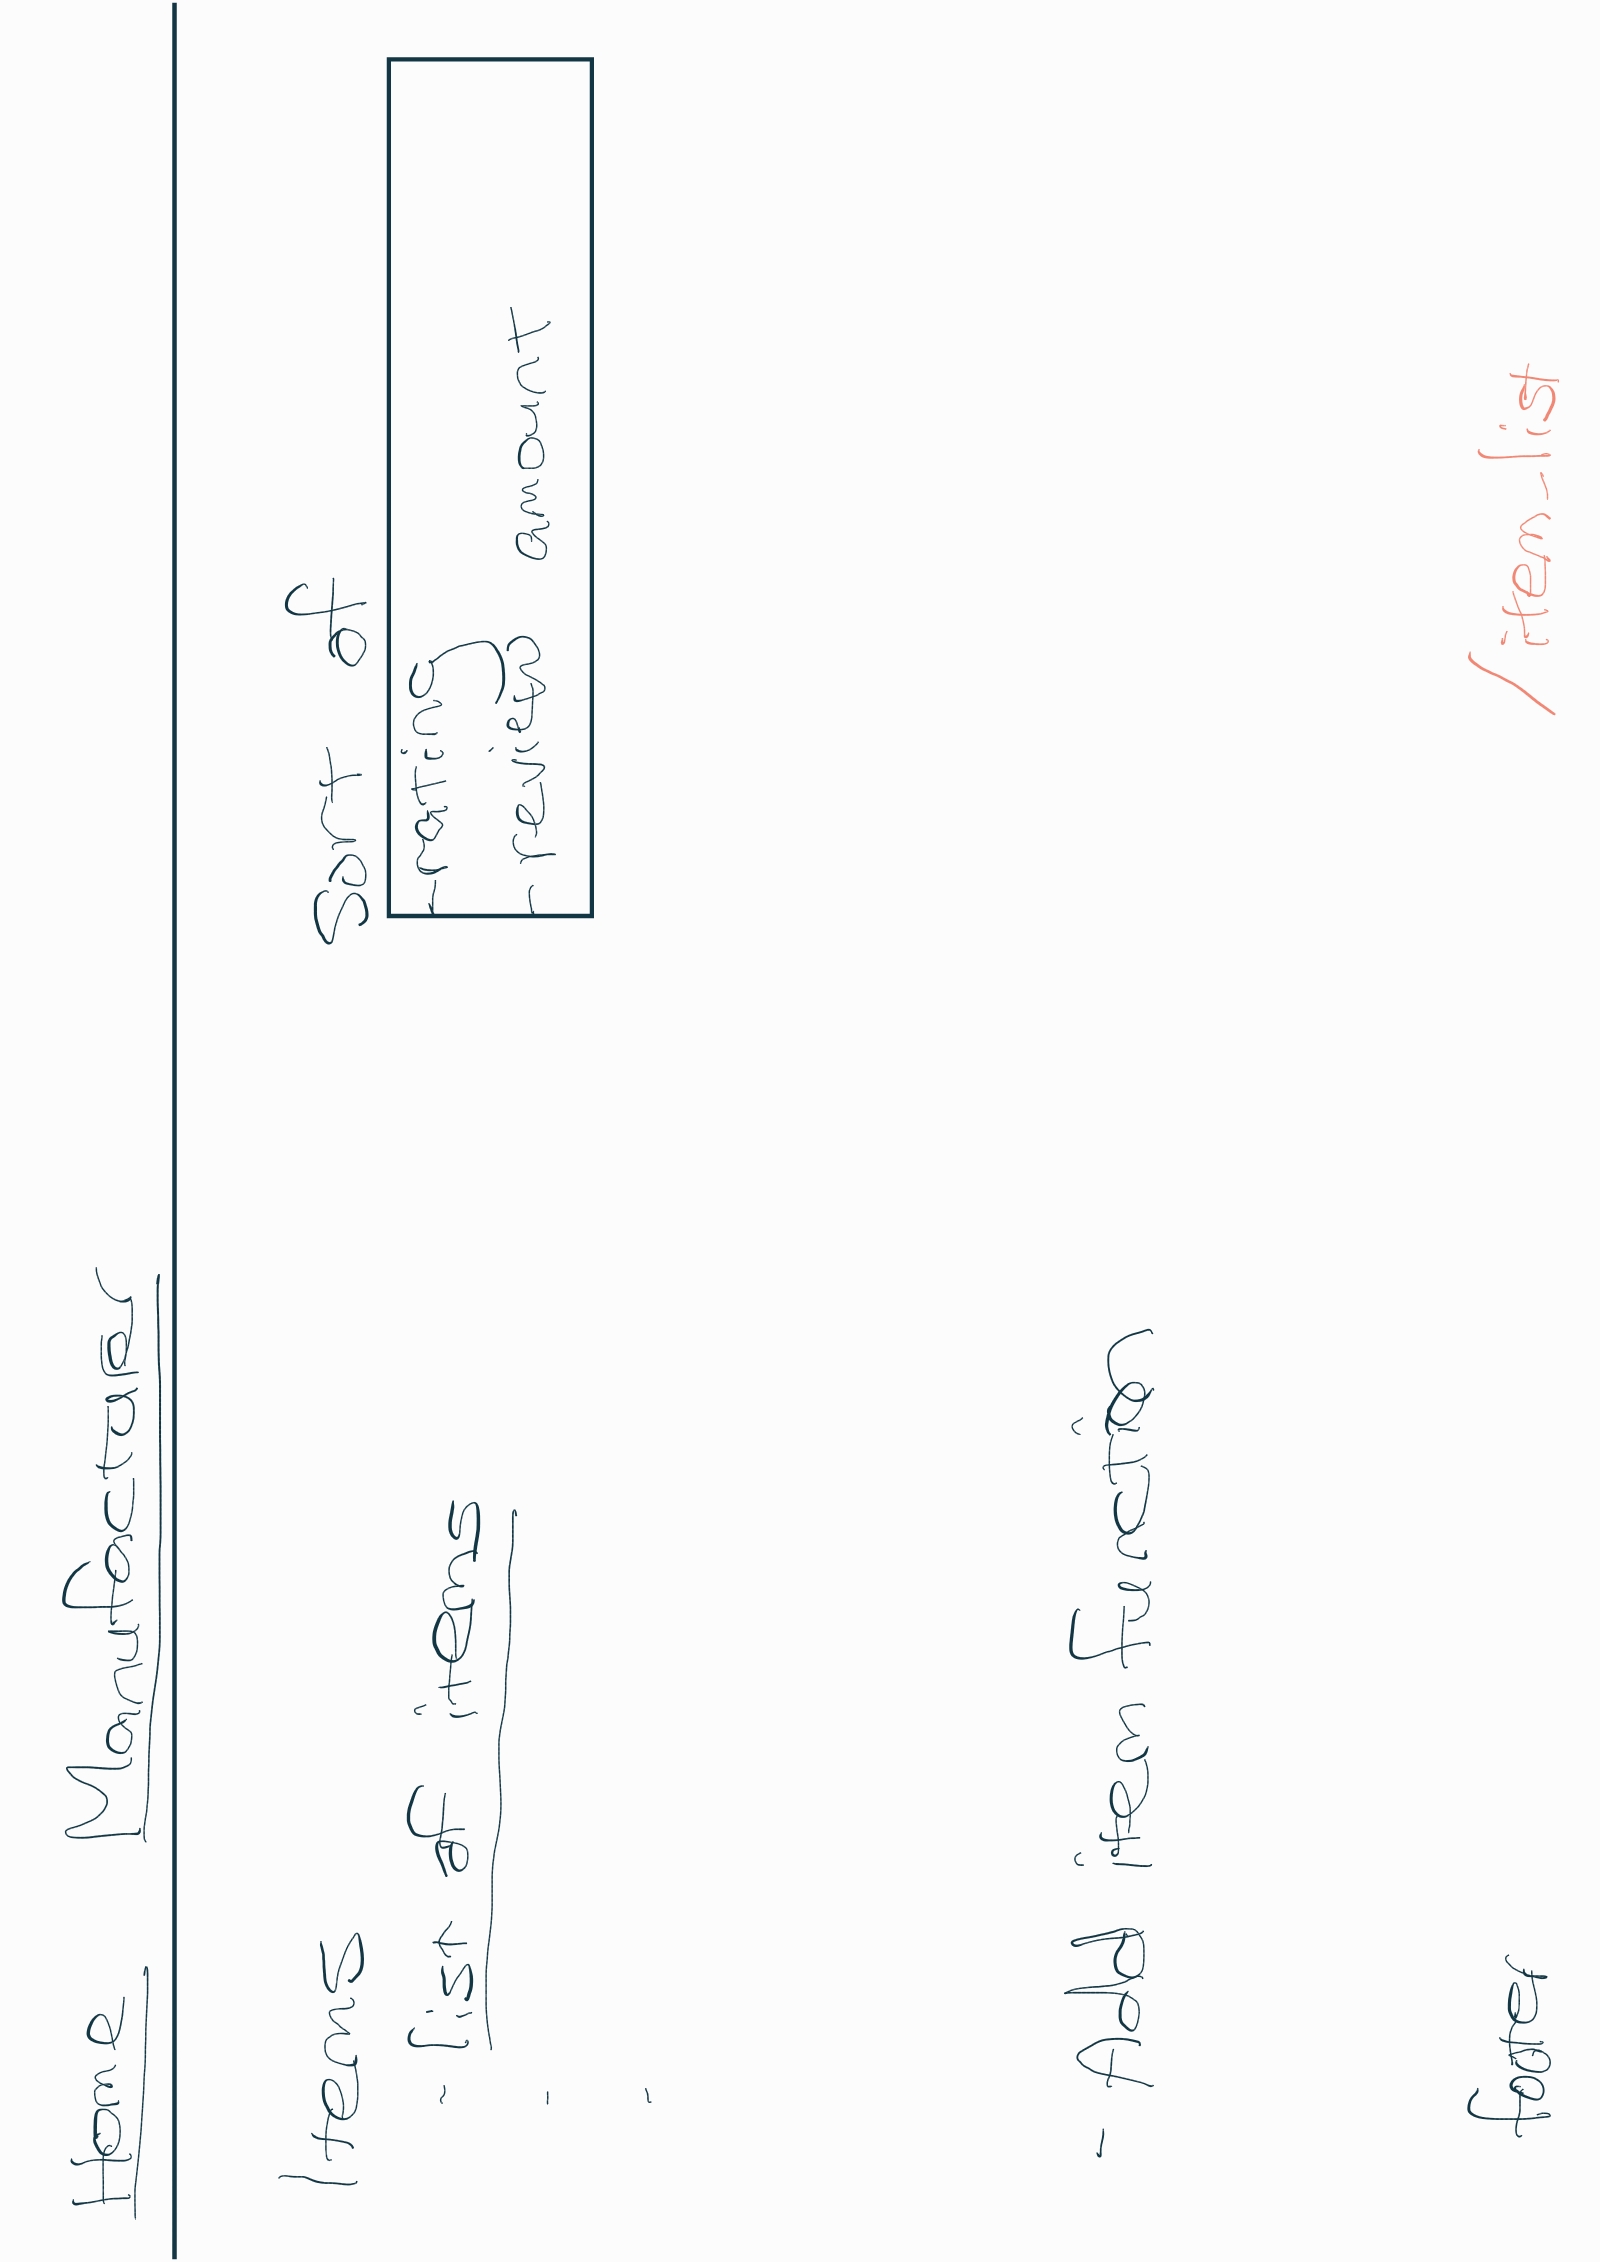 Home Manufacturer
Items
Sort of
- list of items
-
-
- rating
- review amount
- Add item function
footer
/item_list